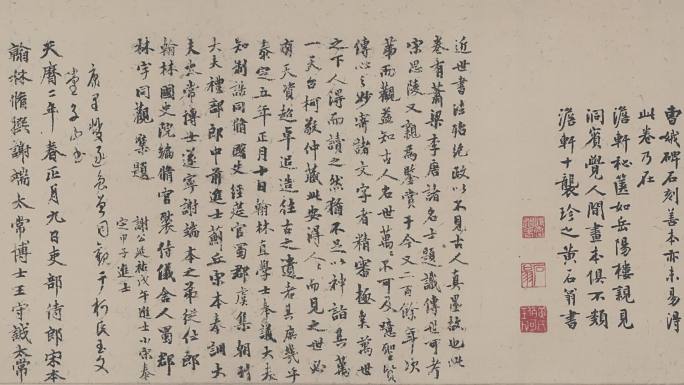 曹娥碑石刻善本亦未易得
此卷乃在
澹軒秘篋如岳陽樓親見
洞賓覺人間畫本俱不類
澹軒十襲珍之黃石翁書
近世書法殆絕政以不見古人真墨故也此
卷有蕭梁李唐諸名士題識傳世可考
宋思陵又親為鑒賞于今又二百餘年次
第而觀益知古人名世萬萬不可及聖賢
傳心之妙寄諸文字者精審極矣萬世
之下人得而讀之然猶不足以神詣其萬
一天台柯敬仲藏此安得人人而見之世必
有天資超卓追造往古之遺者其庶幾乎
泰定五年正月十日翰林直學士奉議大夫
知制誥同脩國史經筵官蜀郡虞集朝列
大夫禮部郎中前進士薊丘宋本奉訓大
夫太常博士遂寧謝端本之弟從仕郎
翰林國史院編脩官褧侍儀舍人蜀郡
林宇同觀褧題
謝公延祐戊午進士小宋泰
定甲子進士
康里巎同觀于柯氏玉文
堂子山書
天曆二年春正月九日吏部侍郎宋本
翰林脩撰謝端太常博士王守誠太常